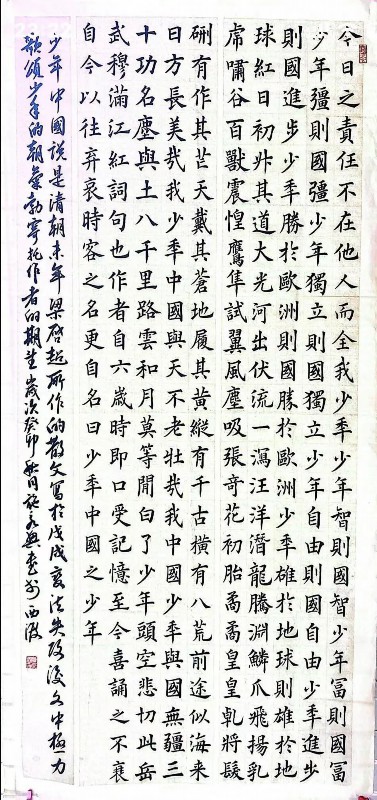 今日之責任不在他人而全我少年少年智則國智少年富則國富
少年彊則國彊少年獨立則國獨立少年自由則國自由少年進步
則國進步少年勝於歐洲則國勝於歐洲少年雄於地球則雄於地
球紅日初升其道大光河出伏流一瀉汪洋潛龍騰淵鱗爪飛揚乳
虎嘯谷百獸震惶鷹隼試翼風塵吸張奇花初胎矞矞皇皇乹將髮
硎有作其芒天戴其蒼地履其黃縱有千古橫有八荒前途似海来
日方長美哉我少年中國與天不老壯哉我中國少年與國無疆三
十功名塵與土八千里路雲和月莫等閒白了少年頭空悲切此岳
武穆滿江紅詞句也作者自六歲時即口受記憶至今喜誦之不衰
自今以往弃哀時客之名更自名曰少年中國之少年
少年中國說是清朝末年梁啓超所作的散文寫於戊戌變法失敗後文中極力
歌頌少年的朝氣勃寄托作者的期望歲次癸卯秋月施書於西